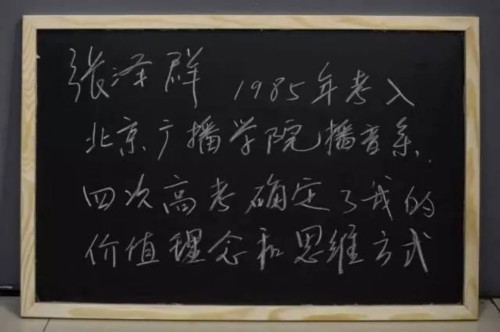 张泽群 1985年考入
北京广播学院播音系.
四次高考确定了我的
价值理念和思维方式